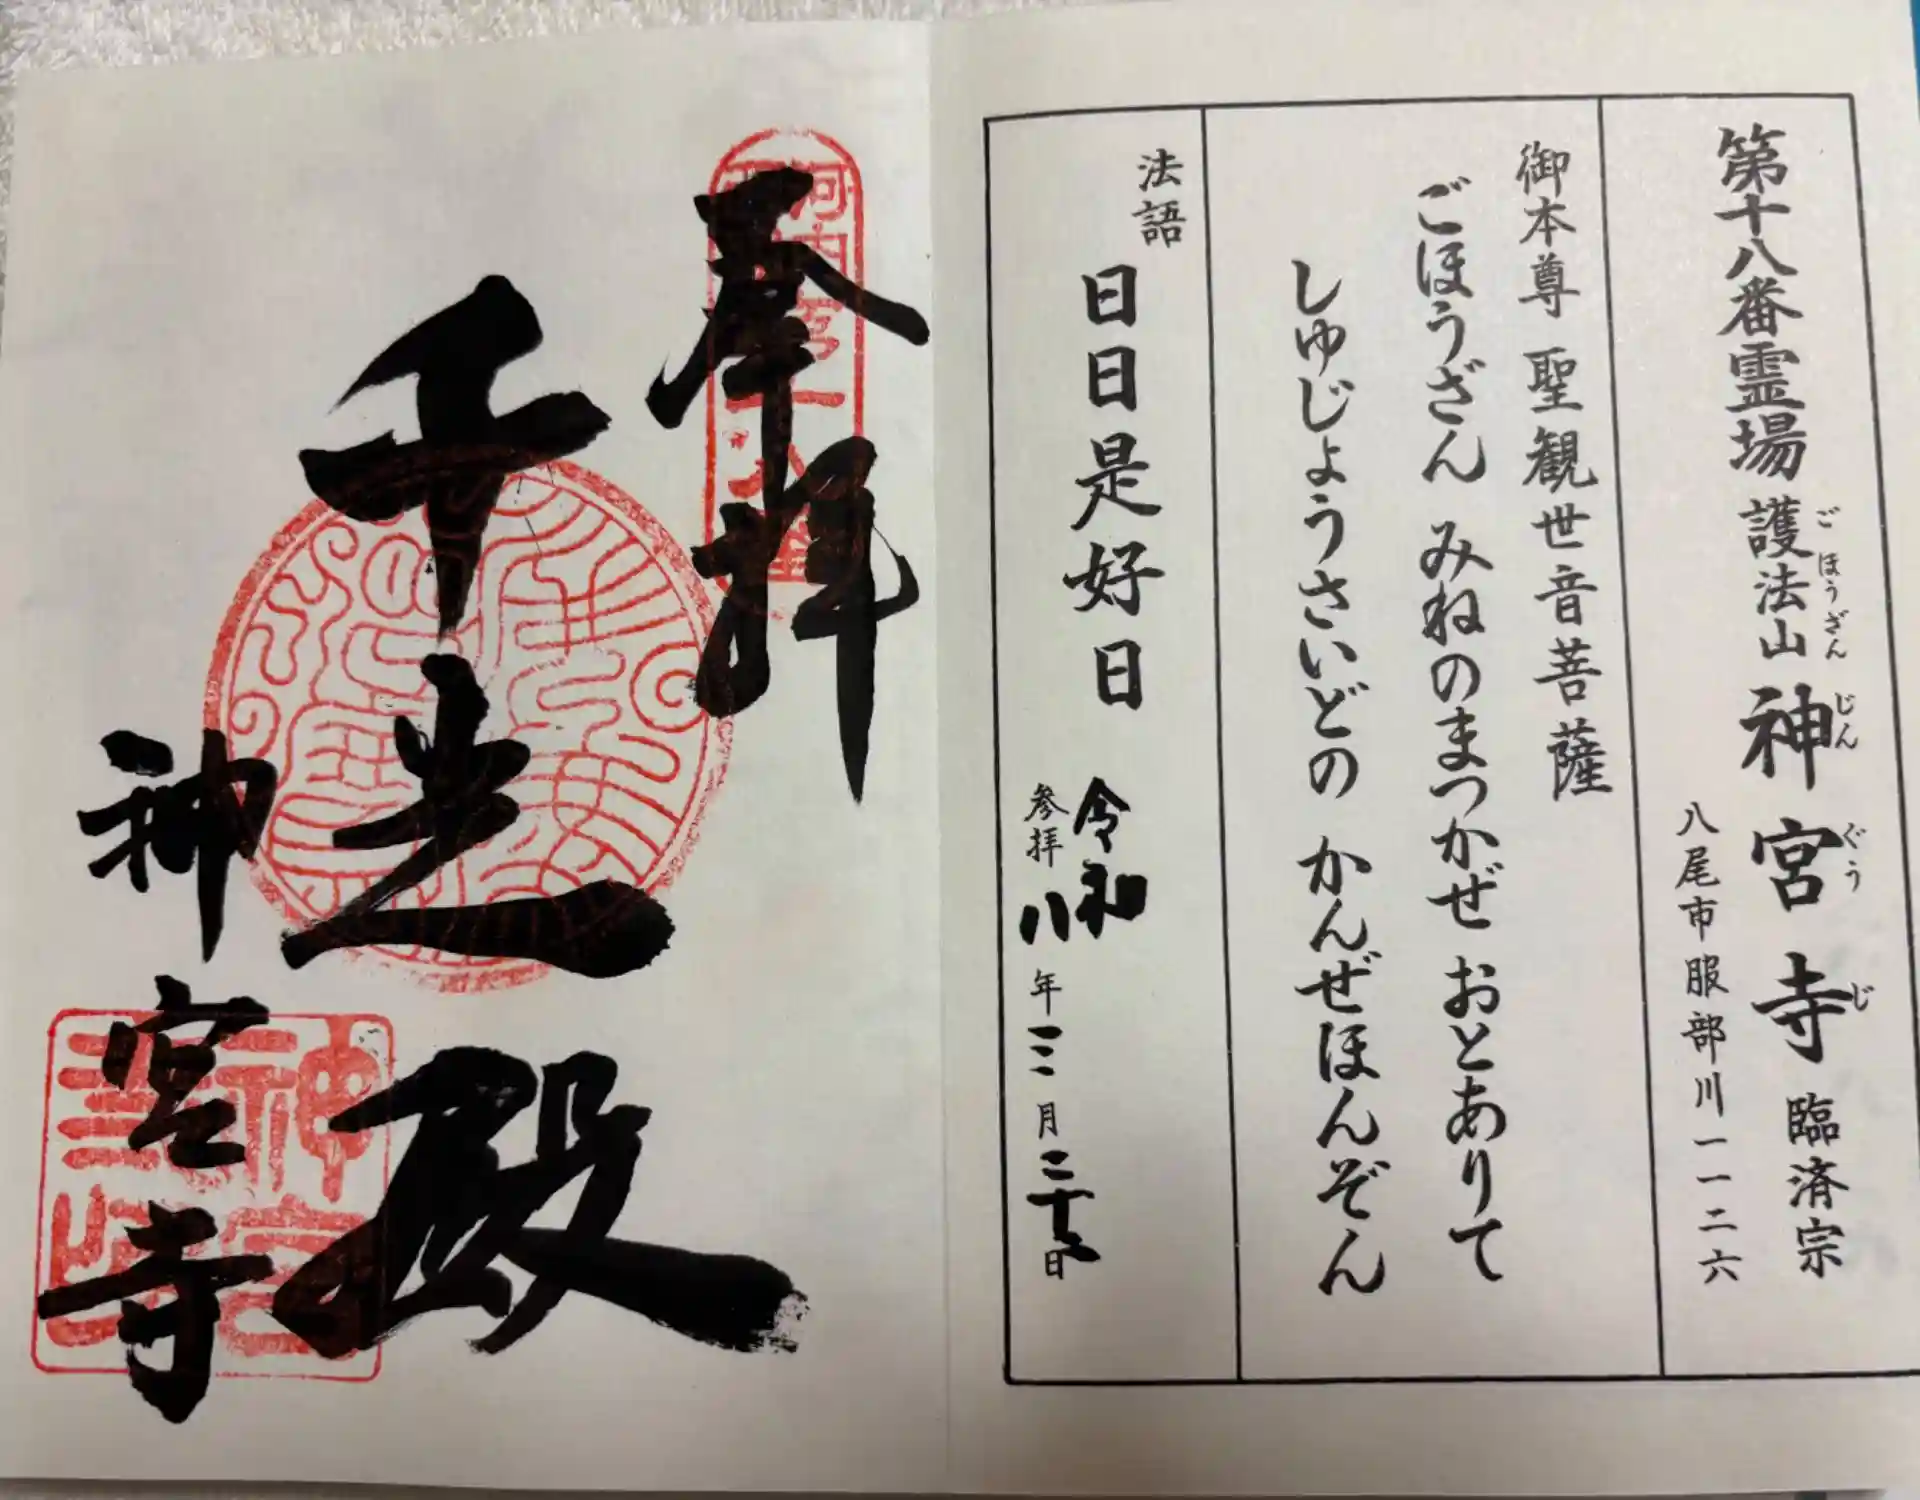 第十八番霊場 護法山 神宮寺 臨済宗
ごほうざん じんぐうじ
八尾市服部川一一二六
御本尊 聖観世音菩薩
ごほうざん みねのまつかぜ おとありて
しゅじょうさいどの かんぜほんぞん
法語 日日是好日
令和
参拝 八年三月二十三日
奉拝
千光殿
神宮寺